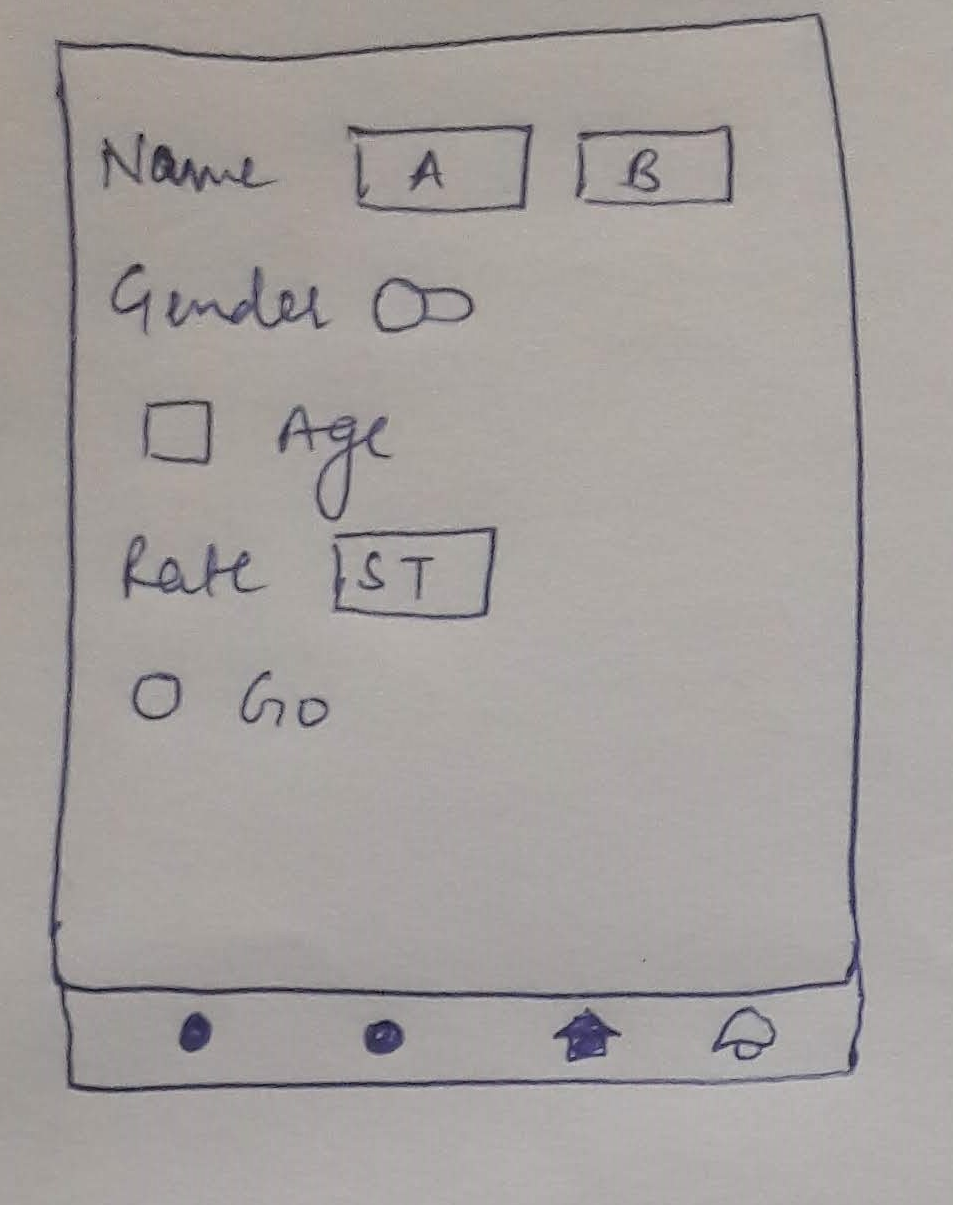 Name A B
Gender
Age
Rate ST
Go